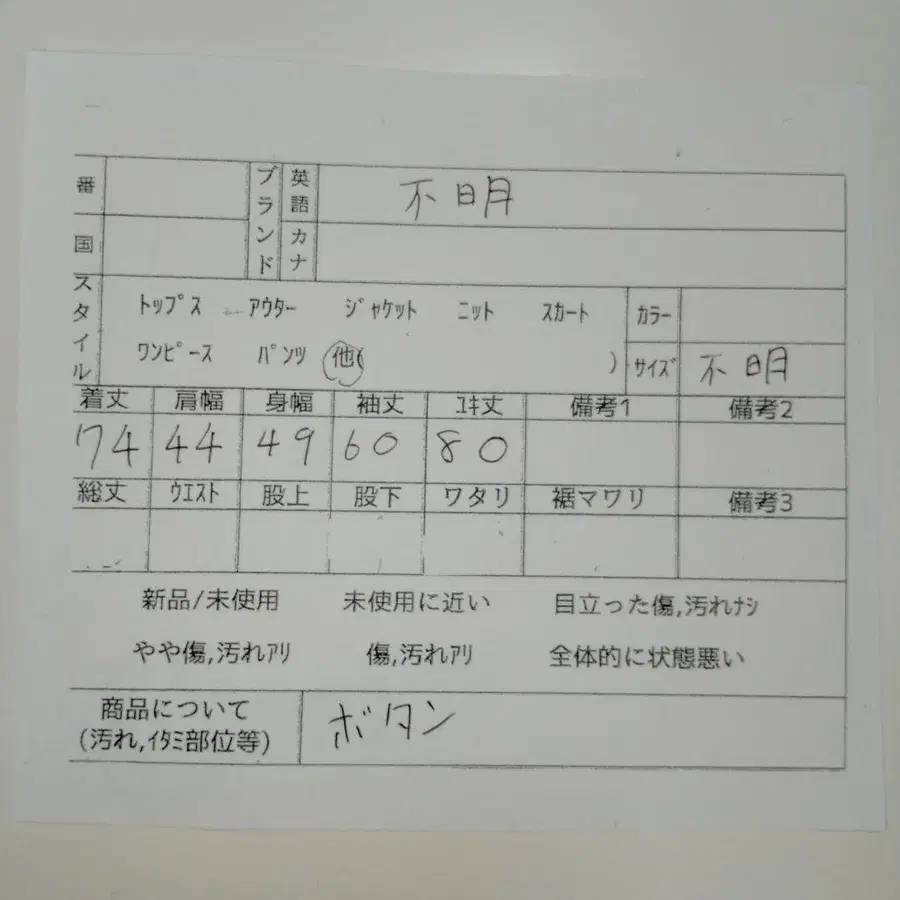 番 ブランド 英語 不明
国 カナ
スタイル トップス アウター ジャケット ニット スカート カラー
ワンピース パンツ 他( ) サイズ 不明
着丈 肩幅 身幅 袖丈 ユキ丈 備考1 備考2
74 44 49 60 80
総丈 ウエスト 股上 股下 ワタリ 裾マワリ 備考3
新品/未使用 未使用に近い 目立った傷,汚れナシ
やや傷,汚れアリ 傷,汚れアリ 全体的に状態悪い
商品について ボタン
(汚れ,イタミ部位等)